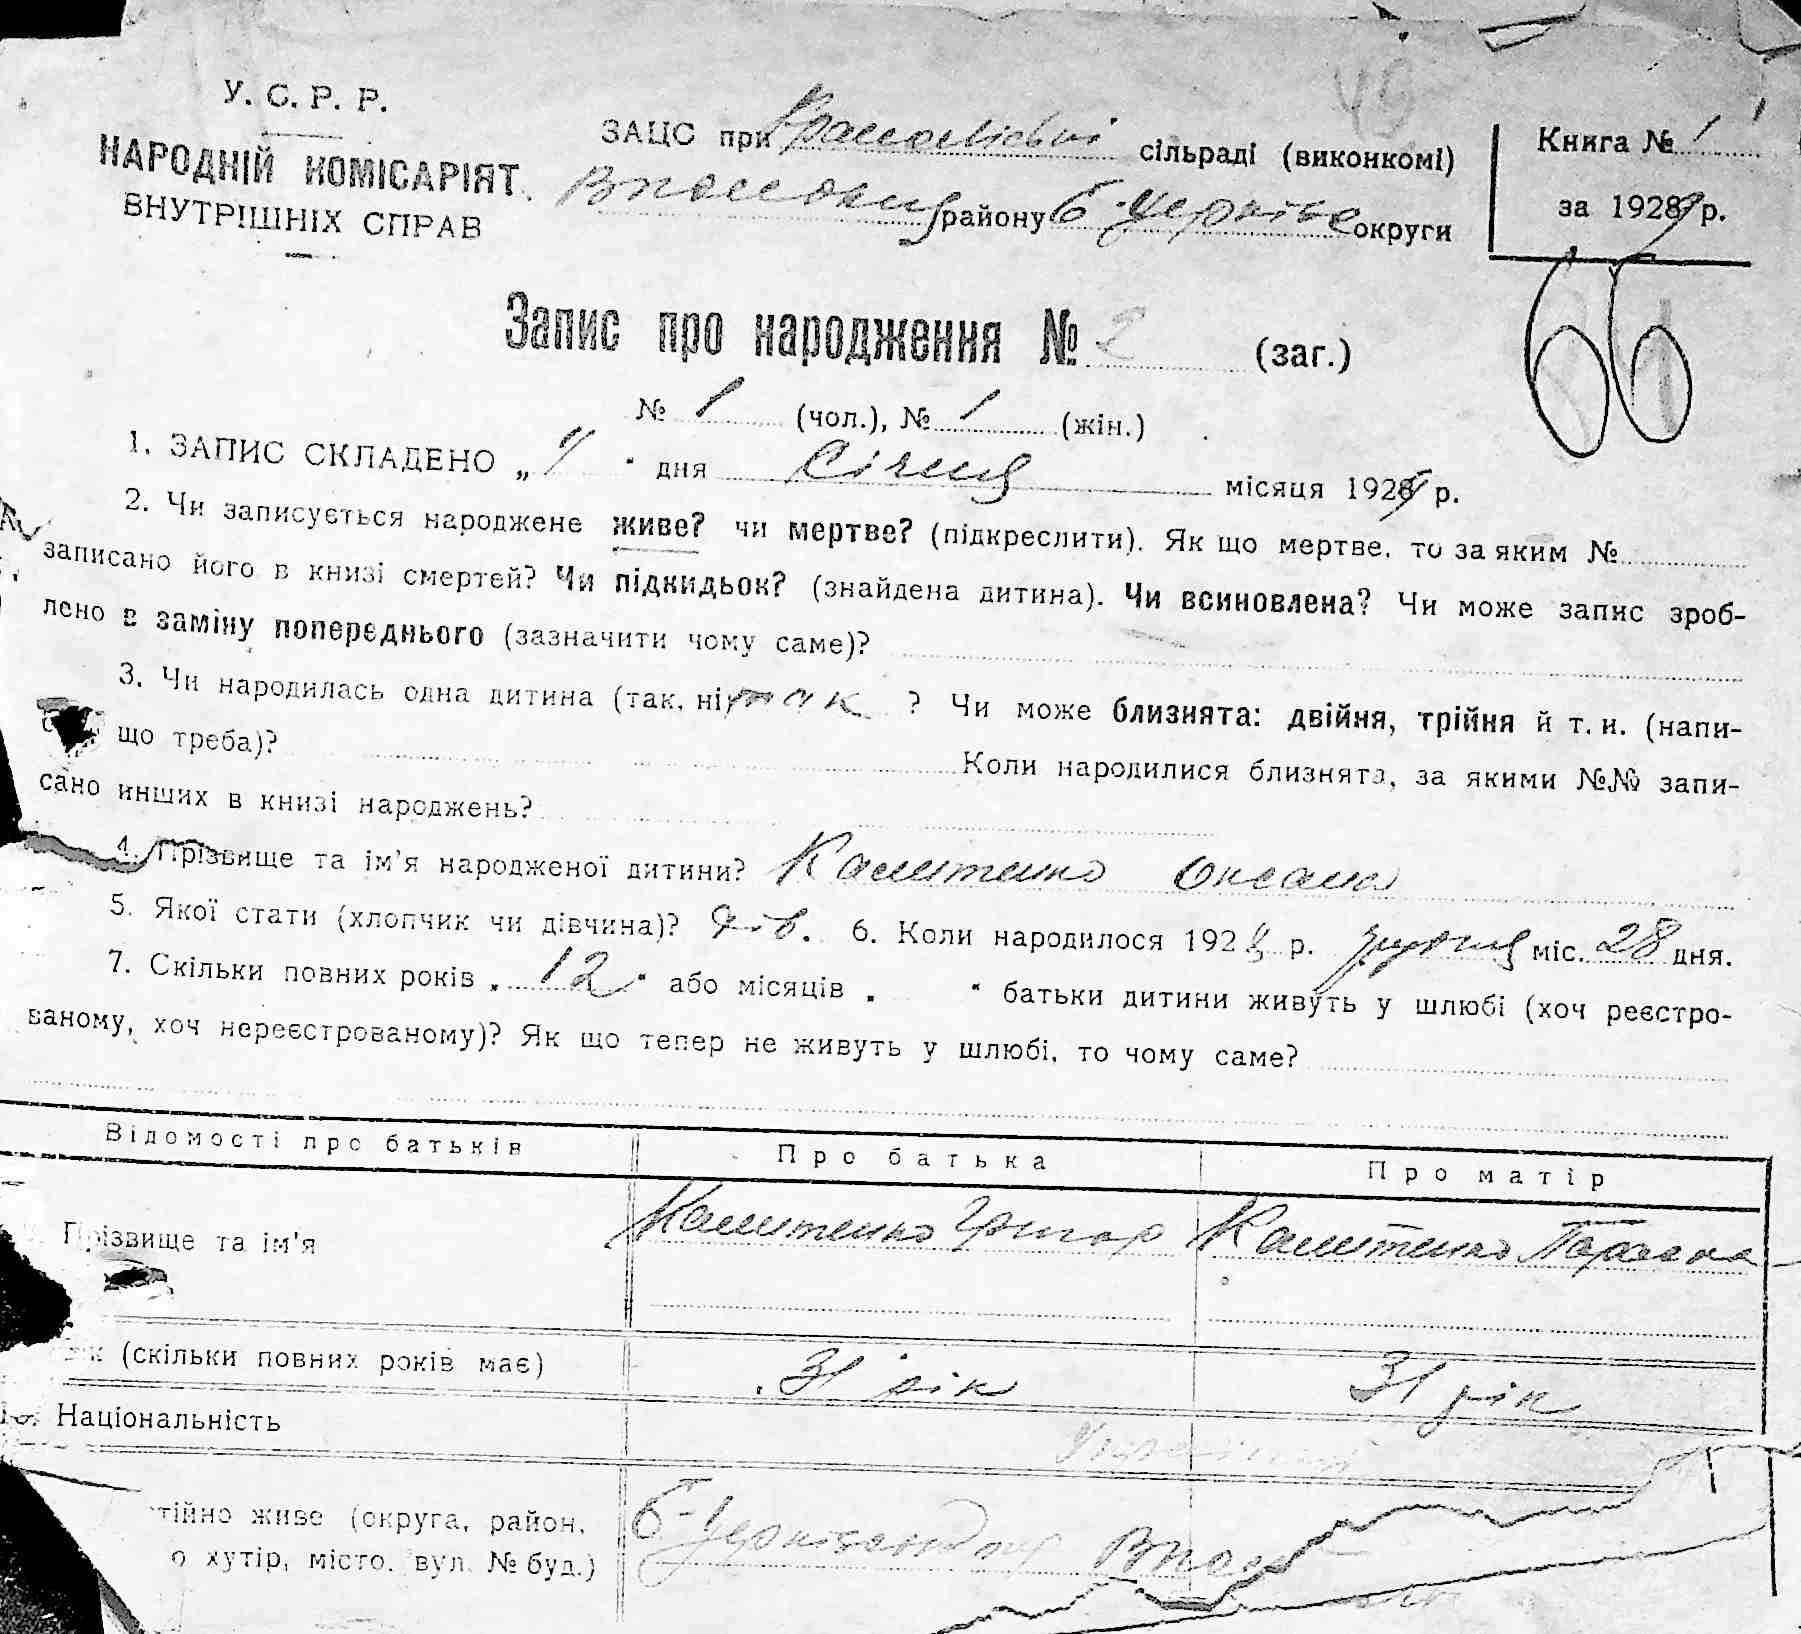 У. С. Р. Р.
НАРОДНІЙ КОМІСАРІЯТ
ВНУТРІШНІХ СПРАВ
ЗАЦС при сільраді (виконкомі)
району Б-Церківс округи
Книга № 1
за 1929 р.
66
Запис про народження № 2 (заг.)
№ 1 (чол.), № 1 (жін.)
1. ЗАПИС СКЛАДЕНО „ “ дня Січня місяця 1929 р.
2. Чи записується народжене живе? чи мертве? (підкреслити). Як що мертве, то за яким №
записано його в книзі смертей? Чи підкидьок? (знайдена дитина). Чи всиновлена? Чи може запис зроб-
лено в заміну попереднього (зазначити чому саме)?
3. Чи народилась одна дитина (так, ні) так ? Чи може близнята: двійня, трійня й т. и. (напи-
що треба)? Коли народилися близнята, за якими №№ запи-
сано инших в книзі народжень?
4. Прізвище та ім'я народженої дитини? Калитенко Оксана
5. Якої стати (хлопчик чи дівчина)? дів. 6. Коли народилося 1928 р. грудня міс. 28 дня.
7. Скільки повних років „ 12 “ або місяців „ “ батьки дитини живуть у шлюбі (хоч реєстро-
ваному, хоч нереєстрованому)? Як що тепер не живуть у шлюбі, то чому саме?
Відомості про батьків Про батька Про матір
Прізвище та ім'я Калитенко Григор Калитенко Параска
(скільки повних років має) 31 рік 31 рік
Національність
тійно живе (округа, район, Б-Церківська
хутір, місто, вул. № буд.)